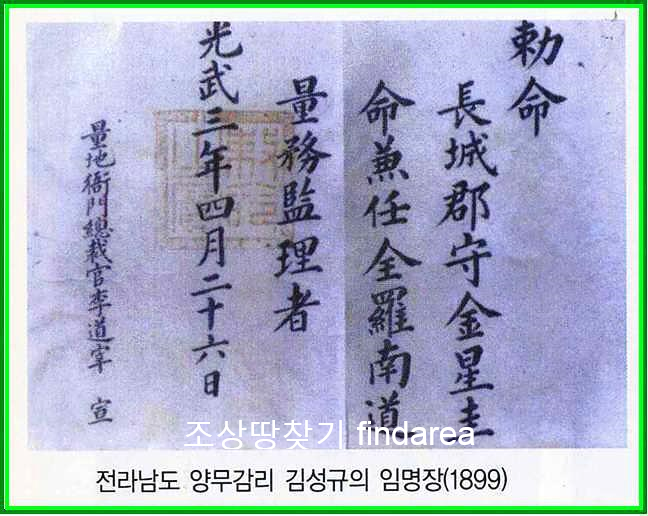 勅命
長城郡守金星圭
命兼任全羅南道
量務監理者
光武三年四月二十六日
量地衙門總裁官李道宰 宣
조상땅찾기 findarea
전라남도 양무감리 김성규의 임명장(1899)